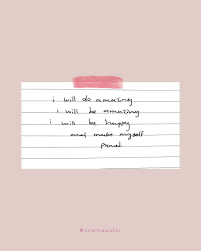 i will do amazing
i will be amazing
i will be happy
and make myself
proud